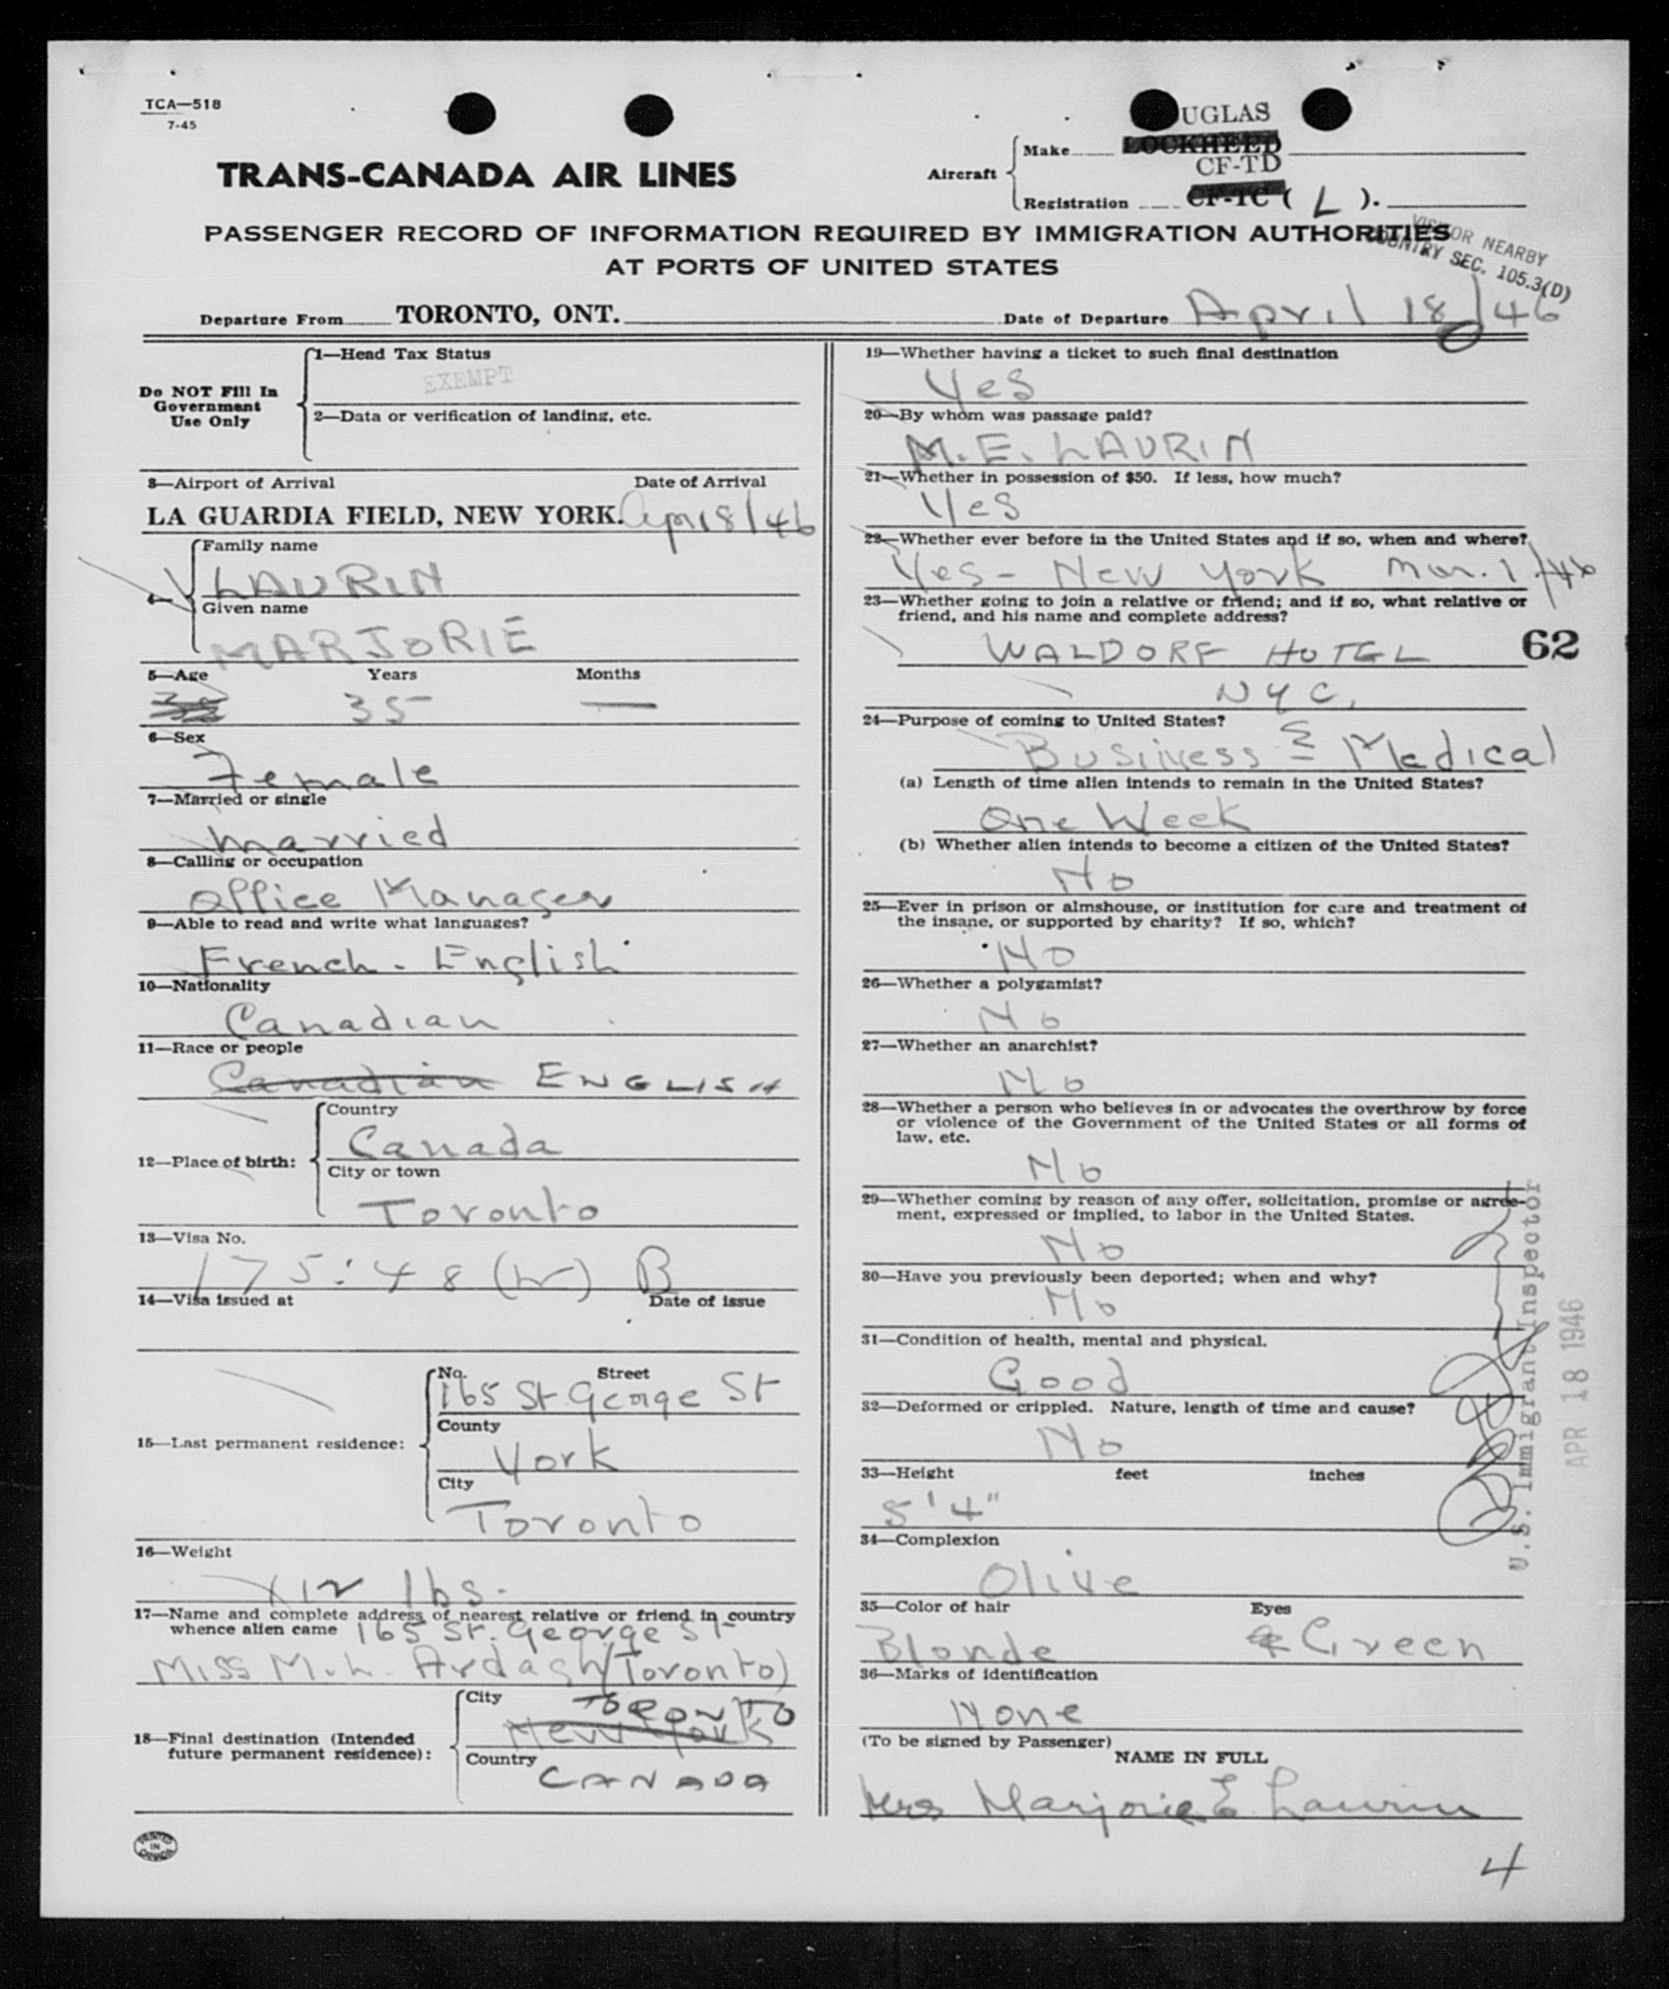 TCA—518
7-45
TRANS-CANADA AIR LINES
Aircraft
Make
UGLAS
LOCKHEED
CF-TD
Registration CF-TC ( L ).
PASSENGER RECORD OF INFORMATION REQUIRED BY IMMIGRATION AUTHORITIES
AT PORTS OF UNITED STATES
VISITOR NEARBY
COUNTRY SEC. 105.3(D)
Departure From TORONTO, ONT. Date of Departure April 18/46
Do NOT Fill In
Government
Use Only
1—Head Tax Status
EXEMPT
2—Data or verification of landing, etc.
3—Airport of Arrival Date of Arrival
LA GUARDIA FIELD, NEW YORK. Apr 18/46
4—
Family name
LAURIN
Given name
MARJORIE
5—Age Years Months
35 —
6—Sex
Female
7—Married or single
married
8—Calling or occupation
Office Manager
9—Able to read and write what languages?
French - English
10—Nationality
Canadian
11—Race or people
Canadian ENGLISH
12—Place of birth:
Country
Canada
City or town
Toronto
13—Visa No.
175:48 (W) B
14—Visa issued at Date of issue
15—Last permanent residence:
No. Street
165 St George St
County
York
City
Toronto
16—Weight
112 lbs.
17—Name and complete address of nearest relative or friend in country
whence alien came 165 St. George St
Miss M. L. Ardagh (Toronto)
18—Final destination (Intended
future permanent residence):
City
TORONTO
New York
Country
CANADA
PRINTED
IN
CANADA
19—Whether having a ticket to such final destination
Yes
20—By whom was passage paid?
M. E. LAURIN
21—Whether in possession of $50. If less, how much?
Yes
22—Whether ever before in the United States and if so, when and where?
Yes - New York Mar. 1/46
23—Whether going to join a relative or friend; and if so, what relative or
friend, and his name and complete address?
WALDORF HOTEL
62
NYC.
24—Purpose of coming to United States?
Business & Medical
(a) Length of time alien intends to remain in the United States?
One Week
(b) Whether alien intends to become a citizen of the United States?
No
25—Ever in prison or almshouse, or institution for care and treatment of
the insane, or supported by charity? If so, which?
No
26—Whether a polygamist?
No
27—Whether an anarchist?
No
28—Whether a person who believes in or advocates the overthrow by force
or violence of the Government of the United States or all forms of
law, etc.
No
29—Whether coming by reason of any offer, solicitation, promise or agree-
ment, expressed or implied, to labor in the United States.
No
30—Have you previously been deported; when and why?
No
31—Condition of health, mental and physical.
Good
32—Deformed or crippled. Nature, length of time and cause?
No
33—Height feet inches
5' 4"
34—Complexion
Olive
35—Color of hair Eyes
Blonde Green
36—Marks of identification
None
(To be signed by Passenger)
NAME IN FULL
Mrs Marjorie E Laurin
U.S. Immigrant Inspector
APR 18 1946
4